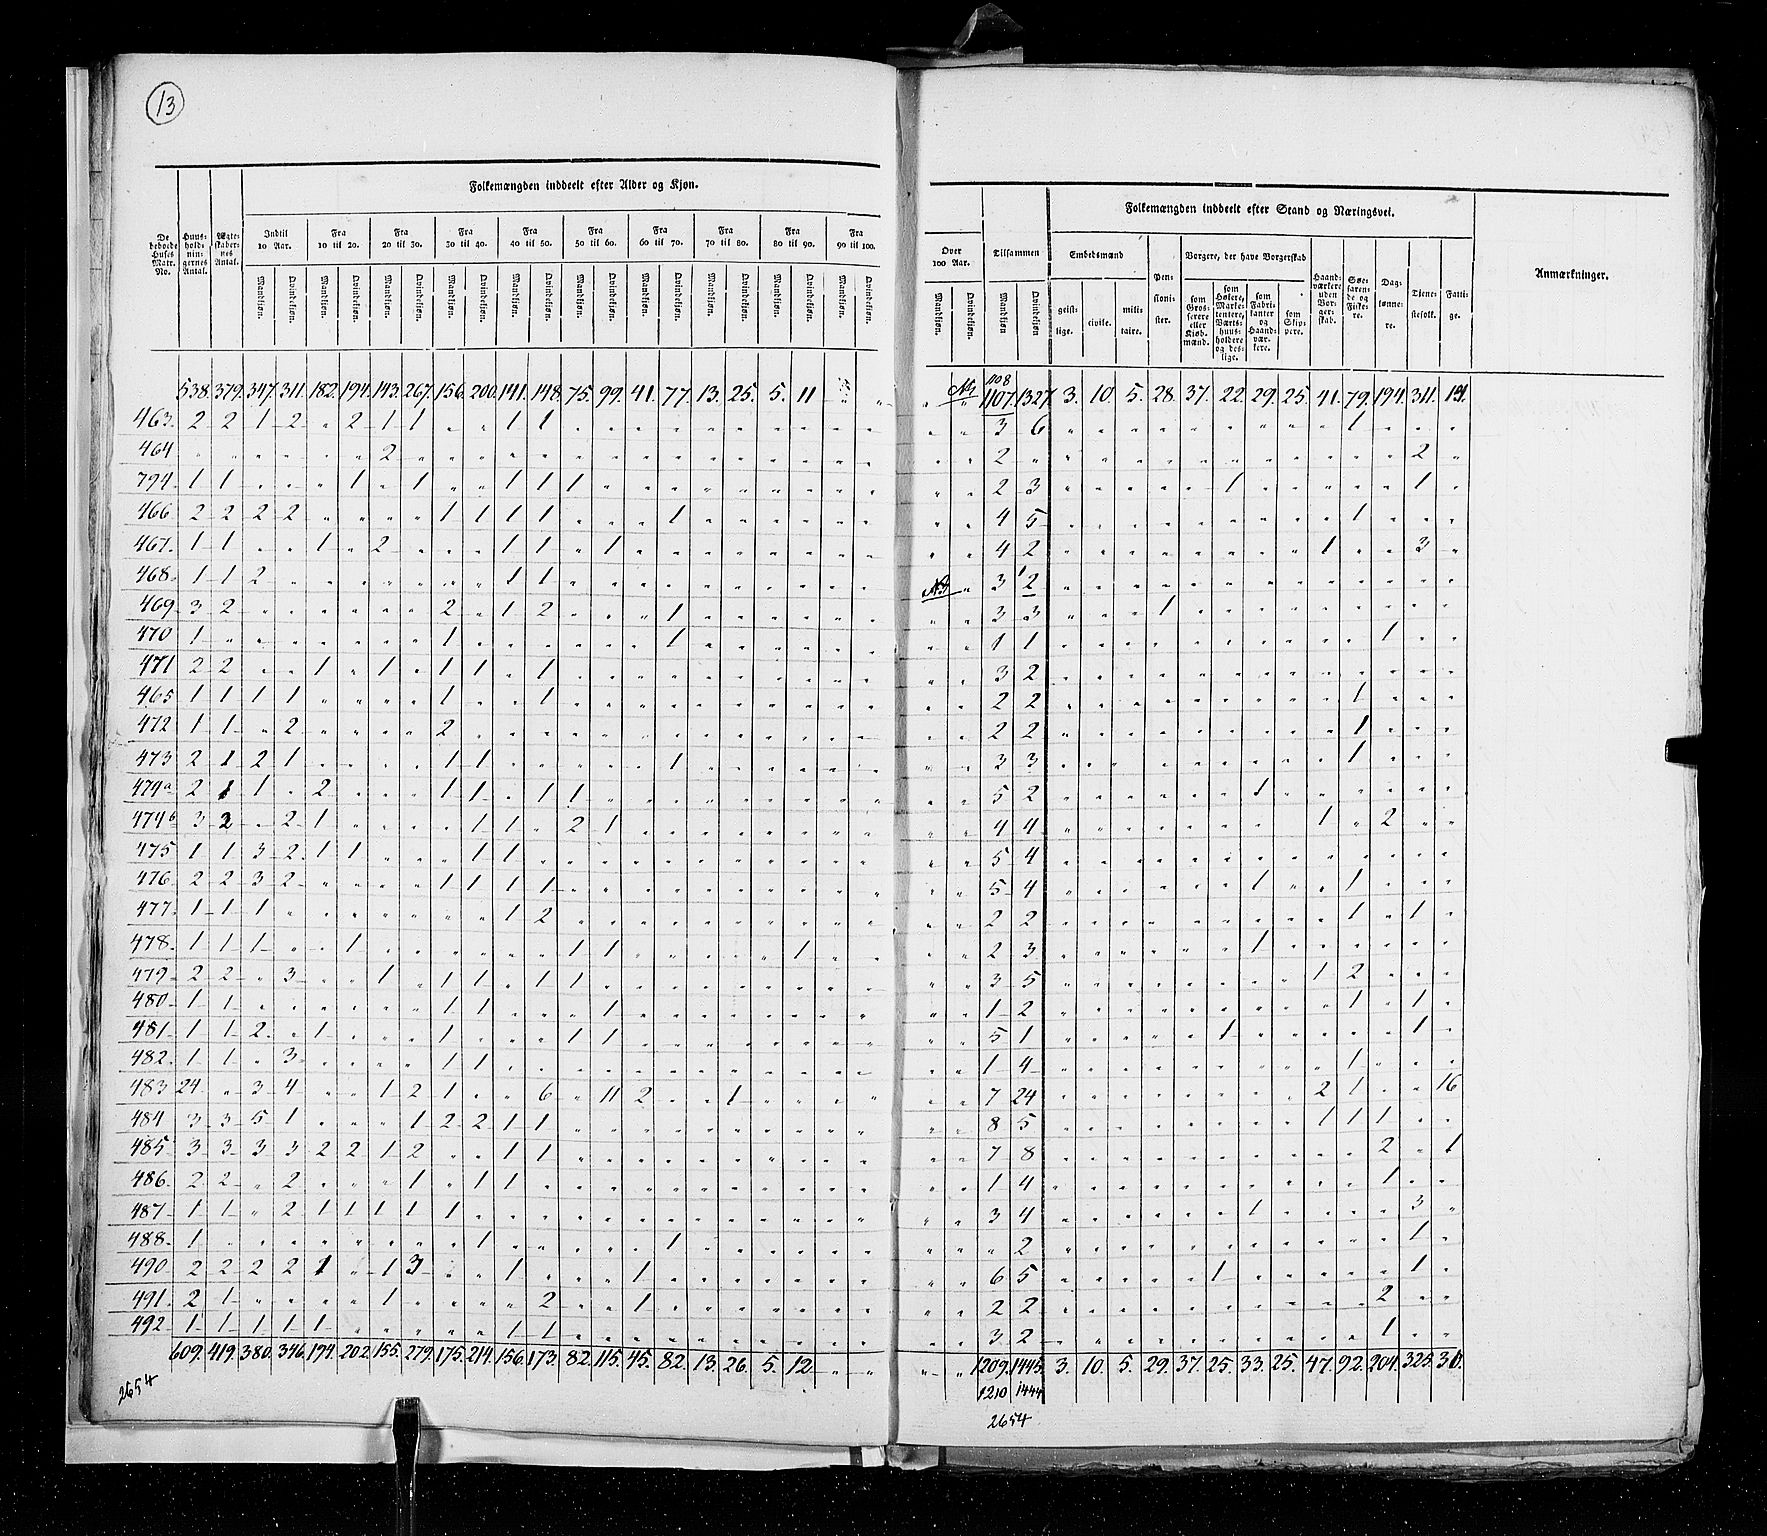 13
Folkemængden inddeelt efter Alder og Kjøn.
De beboede Huses Matr. No. | Huusholdningernes Antal. | Ægteskabernes Antal. | Indtil 10 Aar. | Fra 10 til 20. | Fra 20 til 30. | Fra 30 til 40. | Fra 40 til 50. | Fra 50 til 60. | Fra 60 til 70. | Fra 70 til 80. | Fra 80 til 90. | Fra 90 til 100.
Mandkjøn. Qvindekjøn. Mandkjøn. Qvindekjøn. Mandkjøn. Qvindekjøn. Mandkjøn. Qvindekjøn. Mandkjøn. Qvindekjøn. Mandkjøn. Qvindekjøn. Mandkjøn. Qvindekjøn. Mandkjøn. Qvindekjøn. Mandkjøn. Qvindekjøn. Mandkjøn. Qvindekjøn.
538. 379. 347. 311. 182. 194. 143. 267. 156. 200. 141. 148. 75. 99. 41. 77. 13. 25. 5. 11
463. 2 2 1 2 " 2 1 1 " " 1 1
464 " " " " " " 2
794 1 1 " " " 1 " 1 " " 1 1 1
466 2 2 2 2 " " " " 1 1 1 1 " " " 1
467. 1 1 " " 1 " 2 " " " 1 1 " 1
468. 1 1 2 " " " " " " " 1 1
469 3 2 " " " " " " 2 " 1 2 " " " 1
470 1 " " " " " " " 1 " " " " " " 1
471 2 2 " " 1 " 1 " 1 1 " 1
465 1 1 1 1 " " " " 1 " " 1
472 1 1 " 2 " " " " 2
473 2 1 2 1 " " " " 1 1 " " " " " 1
474a 2 1 1 " 2 " " " 1 1 " 1 1
474b 3 2 " 2 1 " " " " 1 1 " 2 1
475 1 1 3 2 1 1 " " " 1 1
476 2 2 3 2 " " " " 1 1 1 1
477. 1 1 1 " " " " " " " 1 2
478. 1 1 1 " " 1 " " " " " " 1 1 " " " " " 1
479 2 2 " 3 " " 1 " 1 1 " 1 1
480 1 1 " " " " " " 1 1 " " " 1
481 1 1 2 " 1 " " " 1 " " " 1 1
482. 1 1 " 3 " " " " 1 1
483 24 " 3 4 " " 1 2 1 " " 6 " 11 2 " " 1
484 3 3 5 1 " " " 1 2 2 1 1
485 3 3 3 3 2 2 1 2 " " 1 1
486 2 2 " 2 " " " 1 " 1 1
487 1 1 " 2 1 1 1 1 1
488. 1 " " " " " " " " 1 " " " " " 1
490 2 2 2 2 1 " 1 3 " " 1 " " " 1
491. 2 1 " " " " 1 " " " " 2 " " 1
492 1 1 1 1 1 " " " " " 1 1
609. 419. 380. 346. 194. 202. 155. 279. 175. 214. 156. 173. 82. 115. 45. 82. 13. 26. 5. 12
2654
Folkemængden inddeelt efter Stand og Næringsvei.
Over 100 Aar. | Tilsammen | Embedsmænd | Pensionister. | Borgere, der have Borgerskab | Haandværkere uden Borgerskab. | Søefarende og Fiskere. | Dagelønnere. | Tjenestefolk. | Fattige. | Anmærkninger.
Mandkjøn. Qvindekjøn. Mandkjøn Qvindekjøn geistlige. civile. militaire. som Grosserere eller Kiøbmænd. som Høkere, Marketentere, Værtshuusholdere og deslige. som Fabrikanter og Haandværkere. som Skippere.
1108
1107. 1327 3. 10. 5. 28. 37. 22. 29. 25. 41. 79. 194. 311.
3 6 1
2 " 2
2 3 1 1
4 5 1
4 2 1 3
3 2
3 3 1
1 1 1
3 2
2 2 1
2 2 1
3 3 1
5 2 1
4 4 1 " 2
5 4
5 4 1 " " 1
2 2 1 " 1
2 3 1
3 5 1 2
1 2 1 " 1
5 1 1 1
1 4 1
7 24 2 1 " " 16
8 5 1 1 1
7 8 2 " 1
1 4 1
3 4 1 3
" 2 1
6 5 1 1
2 2 2
3 2 1
1209. 1445. 3. 10. 5. 29. 37. 25. 33. 25. 47. 92. 204. 325.
1210 1444
2654